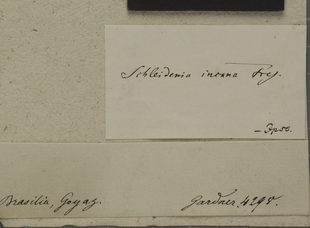 Schleidenia inorna Fres.
Brasilia, Goyaz.
Gardner, 4298.